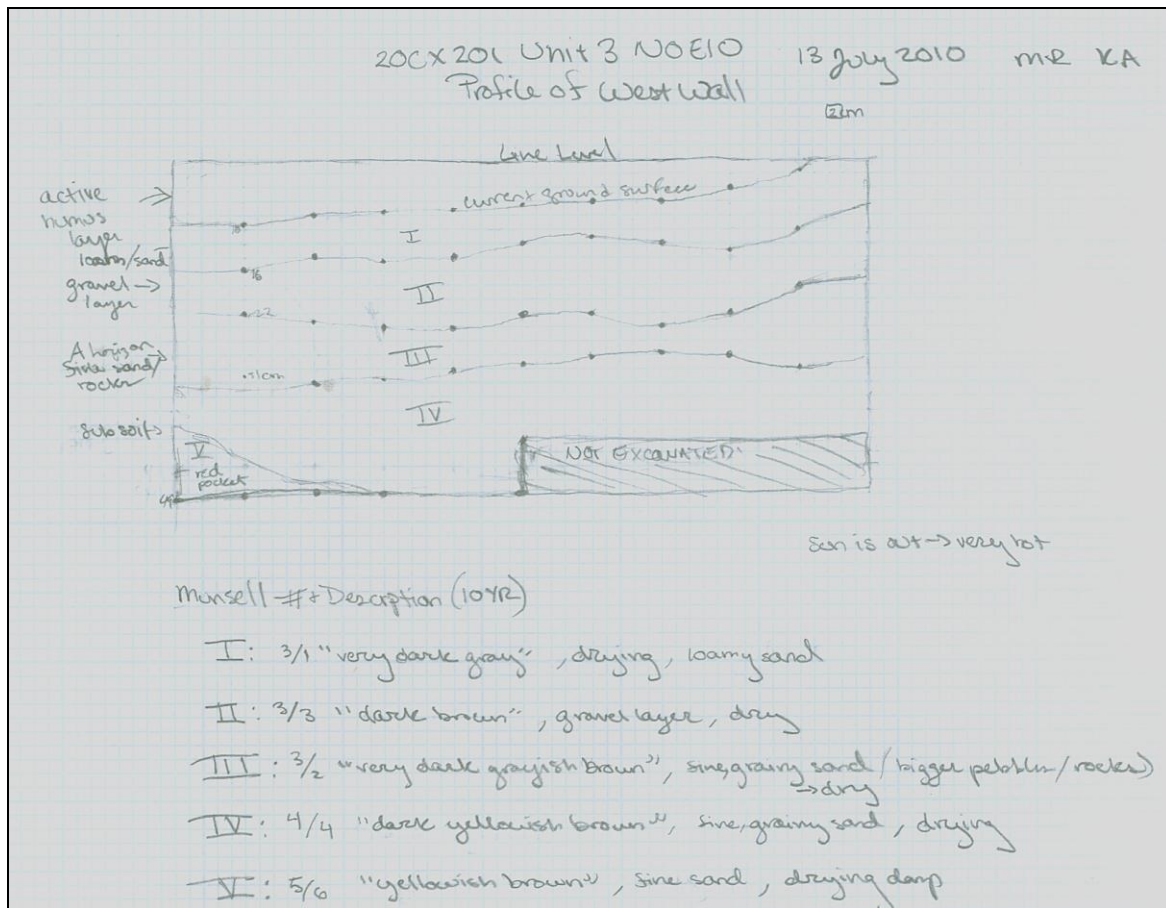 20CX201 Unit 3 N0E10 13 July 2010 MR KA
Profile of West Wall
Line Level
current ground surface
active
humus
layer
loamy/sand
gravel →
layer
A horizon
fine sand/
rocks
subsoil →
I
16
II
22
III
31cm
IV
V
red
pocket
NOT EXCAVATED
sun is out → very hot
Munsell # + Description (10YR)
I: 3/1 "very dark gray", drying, loamy sand
II: 3/3 "dark brown", gravel layer, dry
III: 3/2 "very dark grayish brown", fine, grainy sand / bigger pebbles/rocks)
→ dry
IV: 4/4 "dark yellowish brown", fine, grainy sand, drying
V: 5/6 "yellowish brown", fine sand, drying damp